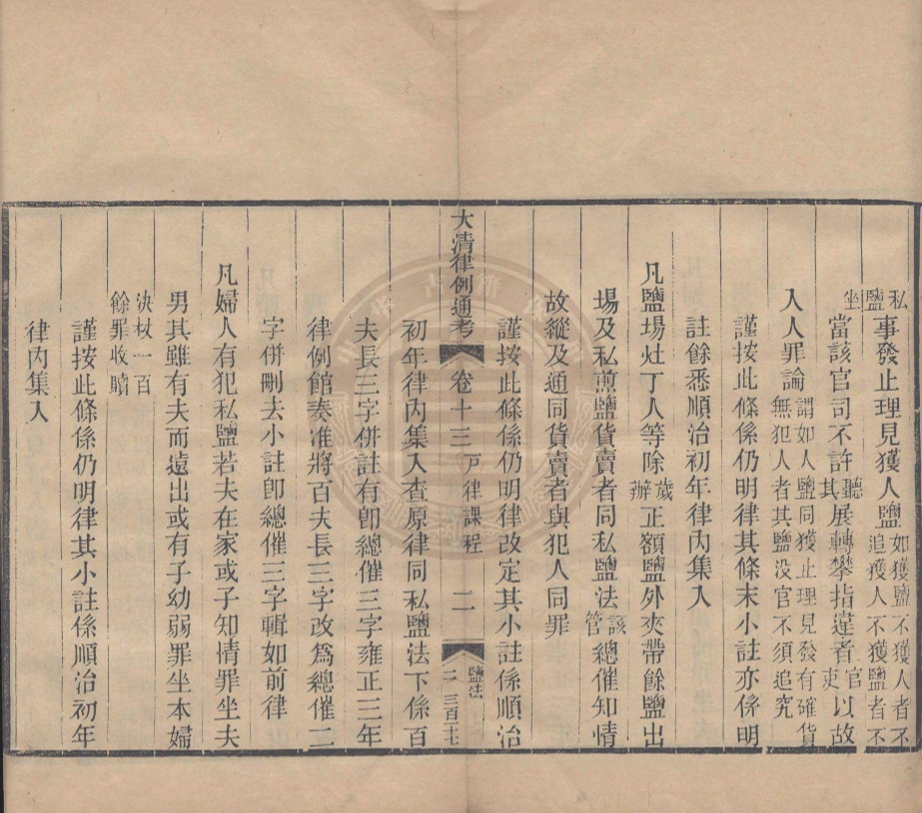 私鹽事發止理見獲人鹽如獲鹽不獲人者不追獲人不獲鹽者不
坐當該官司不許聽其展轉攀指違者官吏以故
入人罪論謂如人鹽同獲止理見發有確貨無犯人者其鹽没官不須追究
謹按此條係仍明律其條末小註亦係明
註餘悉順治初年律內集入
凡鹽場灶丁人等除歲辦正額鹽外夾帶餘鹽出
場及私煎鹽貨賣者同私鹽法該管總催知情
故縱及通同貨賣者與犯人同罪
謹按此條係仍明律改定其小註係順治
大清律例通考 卷十三 戶律課程 二 鹽法
初年律內集入查原律同私鹽法下係百
夫長三字併註有卽總催三字雍正三年
律例館奏准將百夫長三字改爲總催二
字併刪去小註卽總催三字輯如前律
凡婦人有犯私鹽若夫在家或子知情罪坐夫
男其雖有夫而遠出或有子幼弱罪坐本婦
決杖一百餘罪收贖
謹按此條係仍明律其小註係順治初年
律內集入